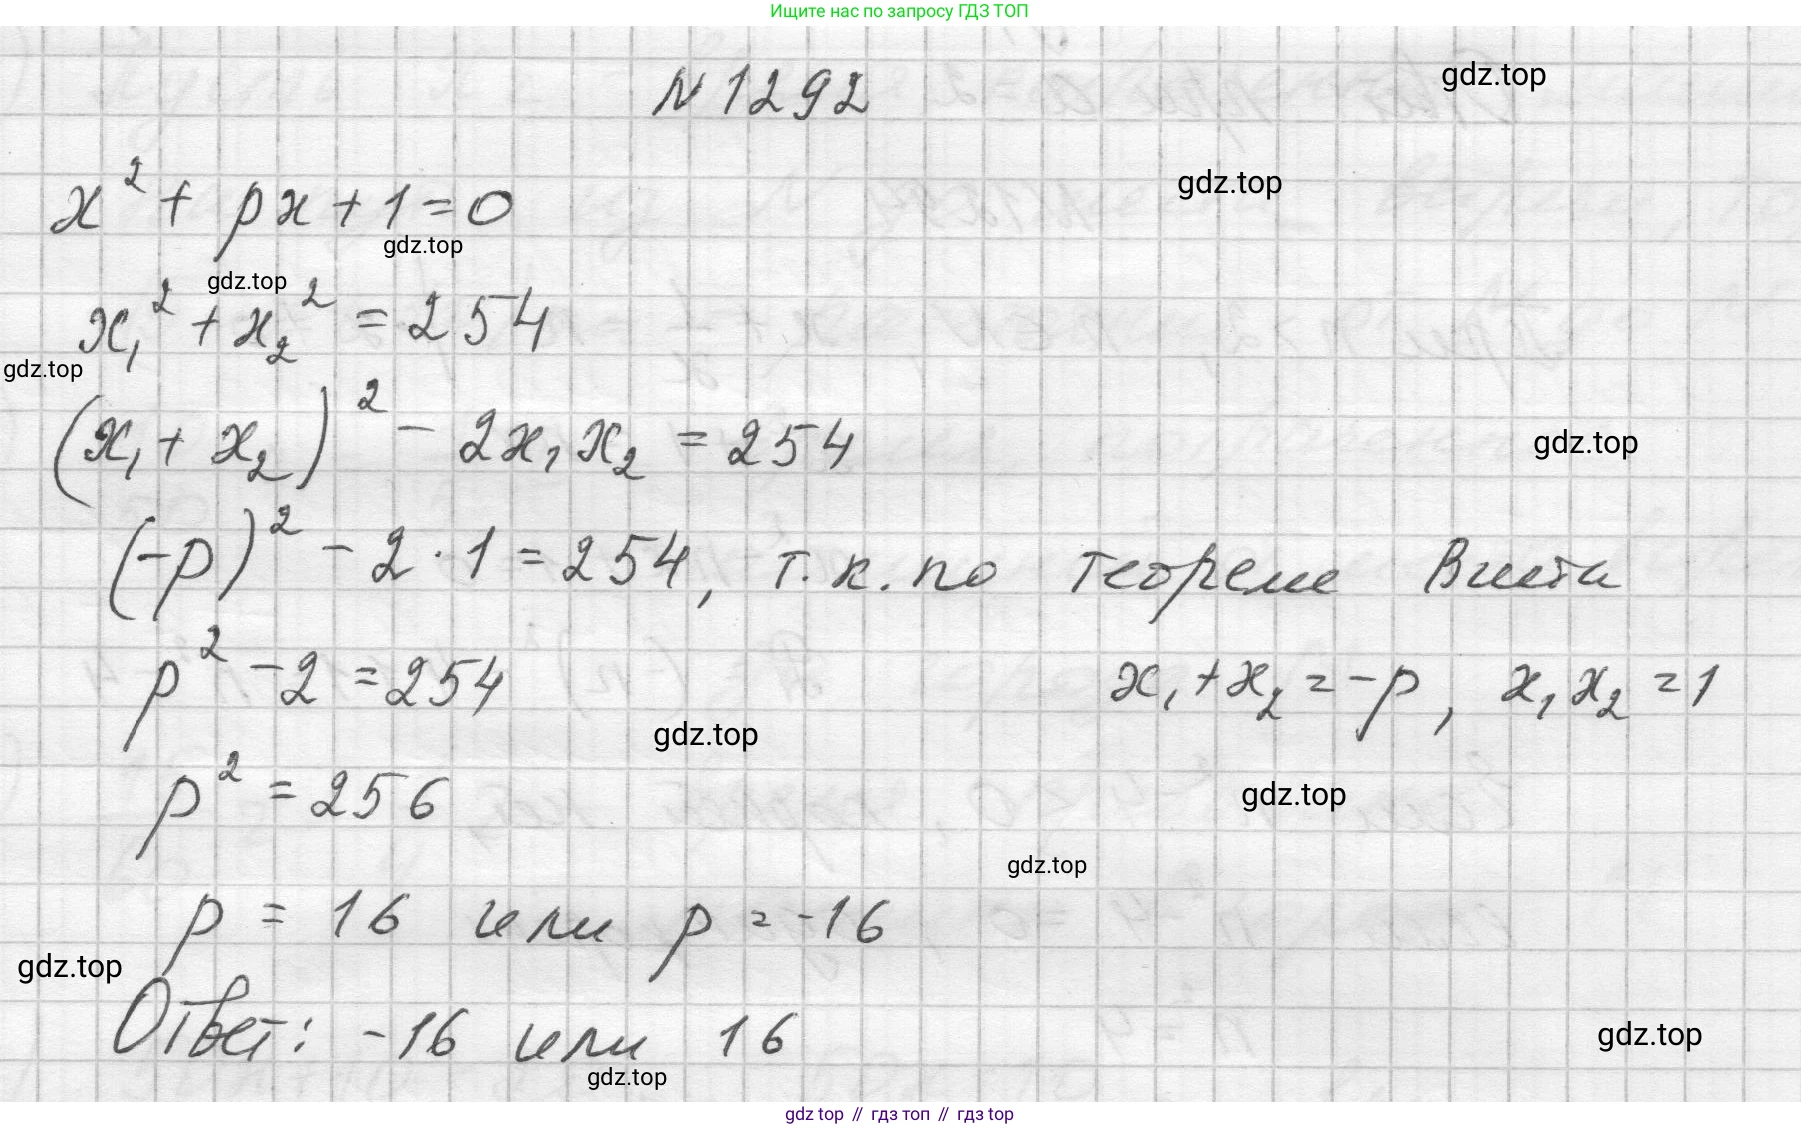 Ищите нас по запросу ГДЗ ТОП
N 1292
gdz.top
gdz.top
x² + px + 1 = 0
gdz.top
gdz.top
x₁² + x₂² = 254
gdz.top
(x₁ + x₂)² - 2x₁x₂ = 254
gdz.top
(-p)² - 2 · 1 = 254, т.к. по теореме Виета
p² - 2 = 254
x₁ + x₂ = -p, x₁x₂ = 1
gdz.top
p² = 256
gdz.top
gdz.top
p = 16 или p = -16
gdz.top
Ответ: -16 или 16
gdz.top
gdz.top
gdz top // гдз топ // гдз top